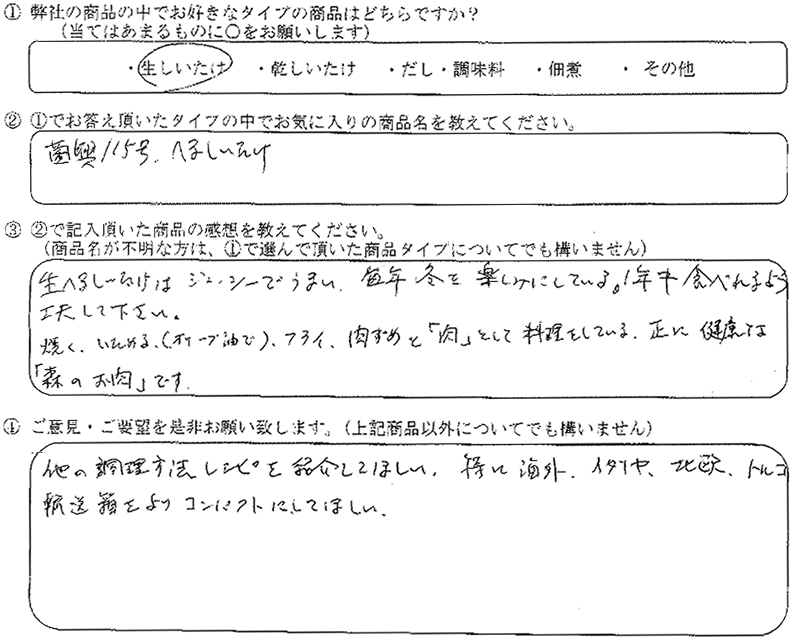 ① 弊社の商品の中でお好きなタイプの商品はどちらですか?
(当てはあまるものに○をお願いします)
・生しいたけ ・乾しいたけ ・だし・調味料 ・佃煮 ・その他
② ①でお答え頂いたタイプの中でお気に入りの商品名を教えてください。
菌興115号、へるしいたけ
③ ②で記入頂いた商品の感想を教えてください。
(商品名が不明な方は、①で選んで頂いた商品タイプについてでも構いません)
生へるしいたけはジューシーでうまい、毎年冬を楽しみにしている。1年中食べれるよう
工夫して下さい。
焼く、いためる、(オリーブ油で)、フライ、肉ずめと「肉」として料理をしている、正に健康な
「森のお肉」です。
④ ご意見・ご要望を是非お願い致します。(上記商品以外についてでも構いません)
他の調理方法レシピを紹介してほしい、特に海外、イタリヤ、北欧、トルコ
輸送箱をよりコンパクトにしてほしい、